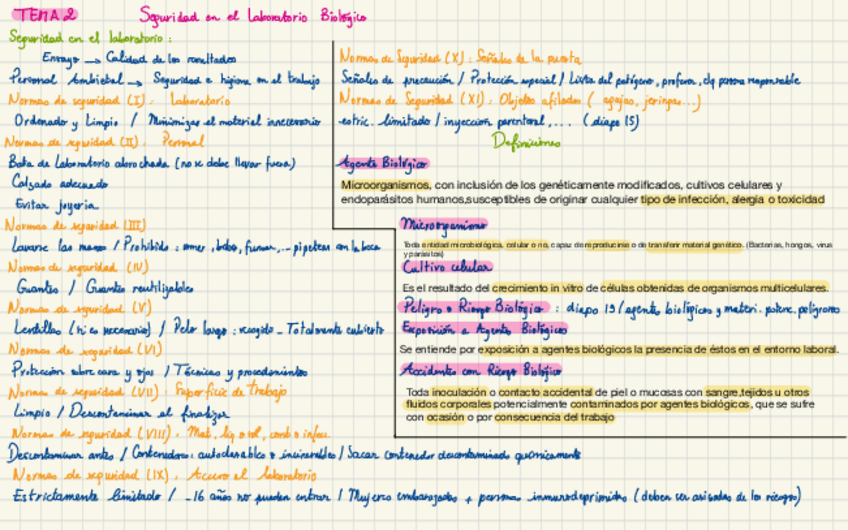 TEMA 2 Seguridad en el Laboratorio Biológico
Seguridad en el laboratorio :
Ensayo → Calidad de los resultados
Personal Ambiental → Seguridad e higiene en el trabajo
Normas de seguridad (I) : Laboratorio
Ordenado y Limpio / Minimizar el material innecesario
Normas de seguridad (II) : Personal
Bata de Laboratorio abrochada (no se debe llevar fuera)
Calzado adecuado
Evitar joyería
Normas de seguridad (III)
Lavarse las manos / Prohibido : comer, beber, fumar,... pipetear con la boca
Normas de seguridad (IV)
Guantes / Guantes reutilizables
Normas de seguridad (V)
Lentillas (si es necesario) / Pelo largo : recogido - Totalmente cubierto
Normas de seguridad (VI)
Protección sobre cara y ojos / Técnicas y procedimientos
Normas de seguridad (VII) : Superficie de trabajo
Limpio / Descontaminar al finalizar
Normas de seguridad (VIII) : Mat, liq o sol,
Descontaminar antes / Contenedores : autoclavables o incinerables / Sacar contenedor descontaminado químicamente
Normas de seguridad (IX) : Acceso al laboratorio
Estrictamente limitado / -16 años no pueden entrar / Mujeres embarazadas + personas inmunodeprimidas (deben ser avisadas de los riesgos)
Normas de Seguridad (X) : Señales de la puerta
Señales de precaución / Protección especial / Lista del patógeno, profesor, persona responsable
Normas de Seguridad (XI) : Objetos afilados ( agujas, jeringas...)
estric. limitado / inyeccion parenteral, ... ( diapo 15)
Definiciones
Agente Biológico
Microorganismos, con inclusión de los genéticamente modificados, cultivos celulares y
endoparásitos humanos,susceptibles de originar cualquier tipo de infección, alergia o toxicidad
Microorganismo
Toda entidad microbiológica, celular o no, capaz de reproducirse o de transferir material genético. (Bacterias, hongos, virus
y parásitos)
Cultivo celular
Es el resultado del crecimiento in vitro de células obtenidas de organismos multicelulares.
Peligro o Riesgo Biológico : diapo 19/agentes biológicos y materi. potenc. peligrosos
Exposición a Agente Biológico
Se entiende por exposición a agentes biológicos la presencia de éstos en el entorno laboral.
Accidentes con Riesgo Biológico
Toda inoculación o contacto accidental de piel o mucosas con sangre,tejidos u otros
fluidos corporales potencialmente contaminados por agentes biológicos, que se sufre
con ocasión o por consecuencia del trabajo